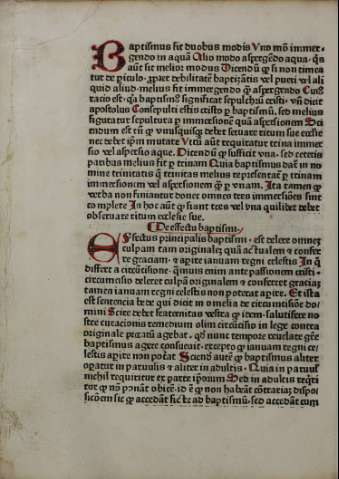 Baptismus fit duobus modis Uno mō immer-
gendo in aquā Alio modo aspergēdo aqua. qs
aūt sit melior modus Dicendū ꝙ si non timea
tur de piculo. ꝓpter debilitatē baptizātis vel pueri vel ali
quid aliud. melius fit immergendo ꝙ̄ aspergendo Cuiꝰ
ratio est. qa baptismꝰ significat sepulchꝝ cristi. vn̄ dicit
apostolus Consepulti estis cristo ꝑ baptismū. sed melius
figuratur sepultura ꝑ immersionē quā aspersionem Di
cendum est tn̄ ꝙ vnusquisqꝫ debet seruare ritum sue eccle
nec debet ip̄m mutare Utrū aūt requiratur trina immer
sio vel aspersio aque. Dicendū ꝙ sufficit vna. sed ceteris
paribus melius fit ꝑ trinam Quia baptismus daꝉ in no
mine trinitatis qͥ trinitas melius representaꝉ ꝑ trinam
immersionem vel aspersionem ꝙ̄ ꝑ vnam. Ita tamen ꝙ
verba non finiantur donec omnes tres immersiōes sint
complete In hoc aūt ꝙ fiunt tres vel vna quilibet debet
obseruare ritum ecclesie sue.
De effectu baptismi.
Effectus principalis baptismi. est delere omnes
culpam tam originalē quā actualem et confer
re graciam. et apire ianuam regni celestis In qͦ
differt a circūcisione. quoniam enim ante passionem cristi.
circumcisio deleret culpā originalem et conferret graciaꝫ
tamen ianuam regni celestis non poterat apire. Et ista
est sentencia bede qui dicit in omelia de circūcisiōe do-
mini Scire debet fraternitas vestra ꝙ idem salutifere no
stre curacionis remedium olim circūcisio in lege contra
originale pccm̄ agebat. qd̄ nunc tempore reuelate grē
baptismus agere consueuit. excepto ꝙ ianuam regni ce-
lestis apire non potat Sciend̄ autē ꝙ baptismus aliter
operatur in paruulis et aliter in adultis. Quia in paruulꝭ
nichil requiritur ex parte ip̄orum Sed in adultis reqͥri
tur ꝙ nō ponāt obicē. id ē ꝙ non habeāt cōtrariaꝫ dispo
sicōem sic ꝙ accedāt ficte ad baptismū. sed accedāt cum